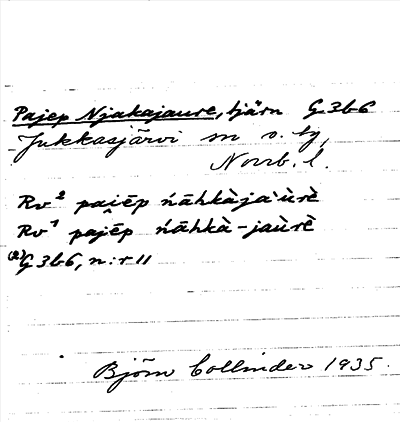 Pajep Njakajaure, tjärn G 3b6
Jukkasjärvi sn o. tg,
Norrb. l.
Rv² paiēp ńāhkàja'ùrè
Rv¹ pajēp ńāhkà-jaùrè
(2) G 3b6, n:r 11
Björn Collinder 1935.